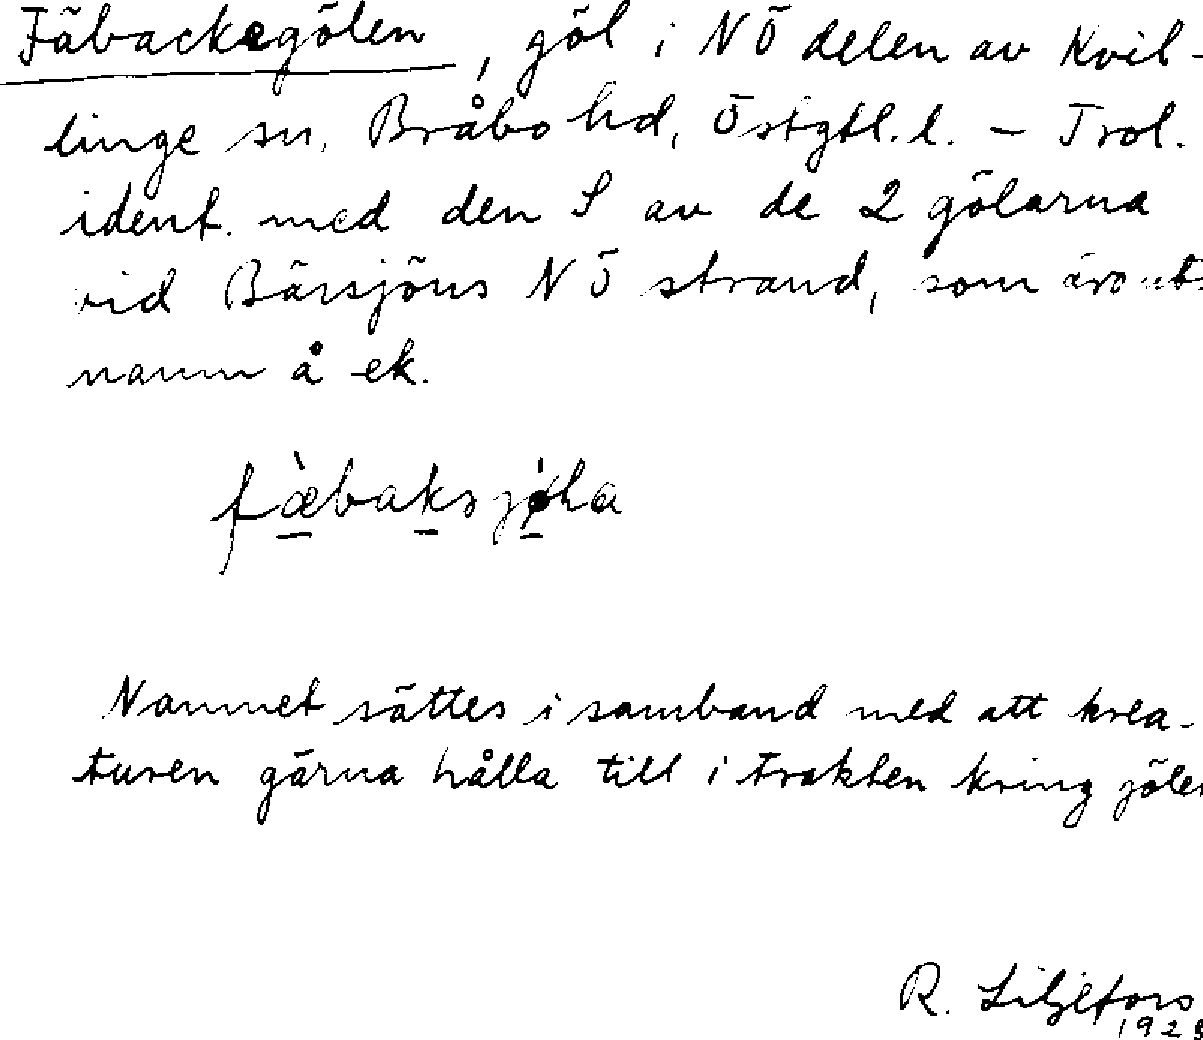 Fäbacksgölen, göl i NÖ delen av Kvil-
linge sn, Bråbo hd, Östgtl. l. – Trol.
ident. med den S av de 2 gölarna
vid Bärsjöns NÖ strand, som äro uts
namn å ek.
Namnet sättes i samband med att krea-
turen gärna hålla till i trakten kring gölen
R. Liljefors